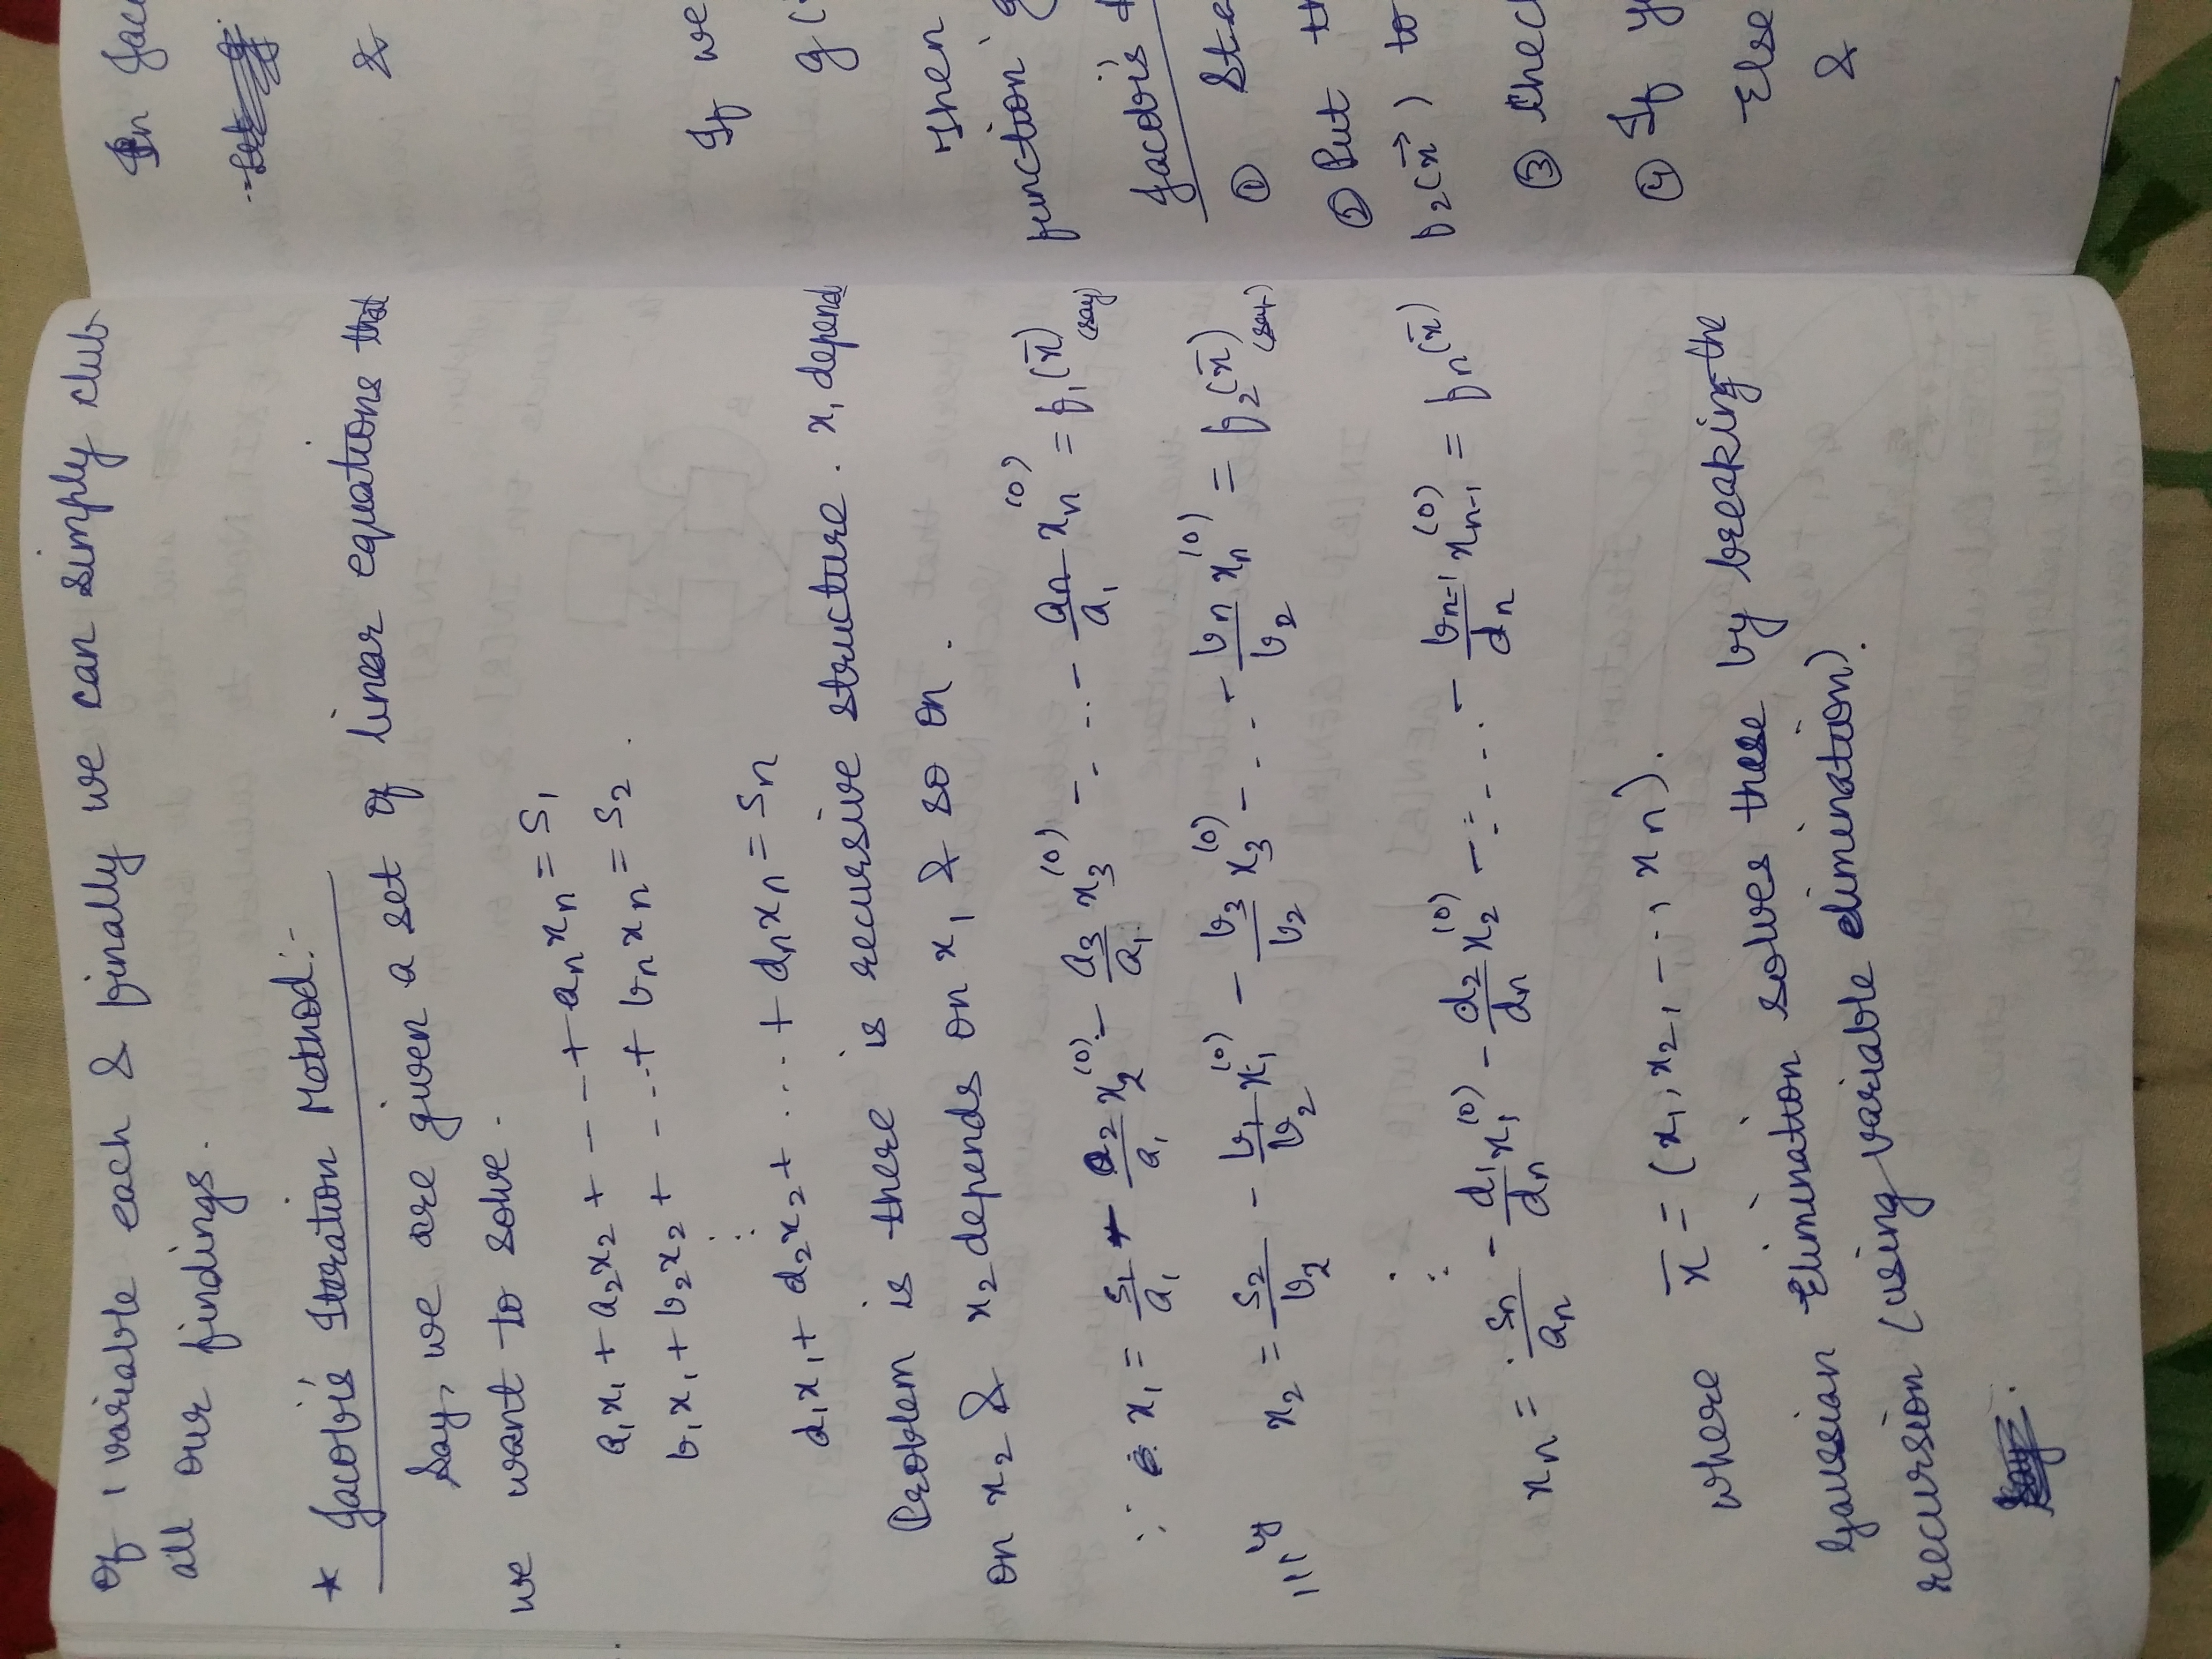 of 1 variable each & finally we can simply club
all our findings.
* Jacobi's Iteration Method:-
Say, we are given a set of linear equations that
we want to solve.
a₁x₁ + a₂x₂ + --- + aₙxₙ = S₁
b₁x₁ + b₂x₂ + - ... + bₙxₙ = S₂
⋮
d₁x₁ + d₂x₂ + ... + dₙxₙ = Sₙ
Problem is there is recursive structure. x₁ depends
on x₂ & x₂ depends on x₁ & so on.
∵ x₁ = S₁/a₁ - a₂/a₁ x₂⁽⁰⁾ - a₃/a₁ x₃⁽⁰⁾ - ... - aₙ/a₁ xₙ⁽⁰⁾ = f₁(x̄) (say)
|||ly x₂ = S₂/b₂ - b₁/b₂ x₁⁽⁰⁾ - b₃/b₂ x₃⁽⁰⁾ - ... - bₙ/b₂ xₙ⁽⁰⁾ = f₂(x̄) (say)
⋮
xₙ = Sₙ/aₙ - d₁/dₙ x₁⁽⁰⁾ - d₂/dₙ x₂⁽⁰⁾ - ... - bₙ₋₁/dₙ xₙ₋₁⁽⁰⁾ = fₙ(x̄)
where x̄ = (x₁, x₂, ---, xₙ).
Gaussian Elimination solves these by breaking the
recursion (using variable elimination).
In Jac
&
If we
g(
Then
function g
Jacobi's
① Ste
② Put th
f₂(x⃗) to
③ Chec
④ If y
Else
&